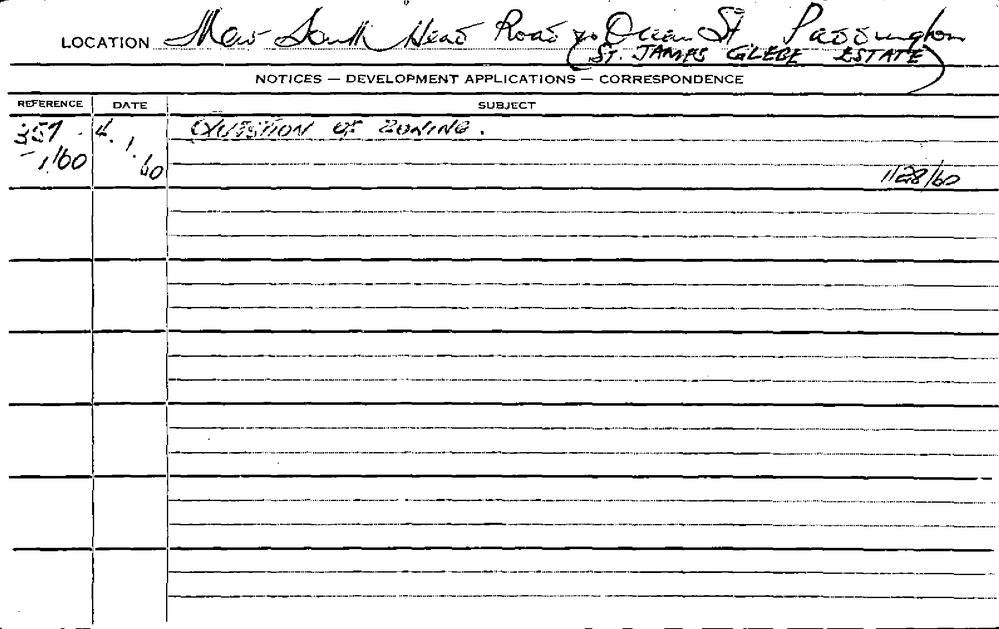 LOCATION New South Head Road & Ocean St Paddington
(ST. JAMES GLEBE ESTATE)
NOTICES — DEVELOPMENT APPLICATIONS — CORRESPONDENCE
REFERENCE DATE SUBJECT
357 4. 1. 60 QUESTION OF ZONING.
-1/60
1/28/60